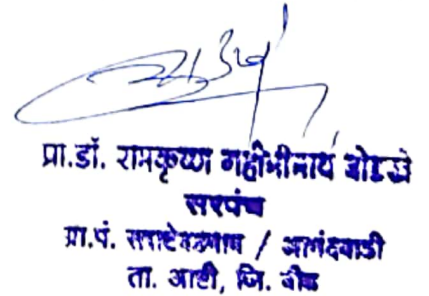 प्रा.डॉ. रामकृष्ण गहीनीनाथ बोडखे
सरपंच
ग्रा.पं. / आनंदवाडी
ता. आष्टी, जि. बीड